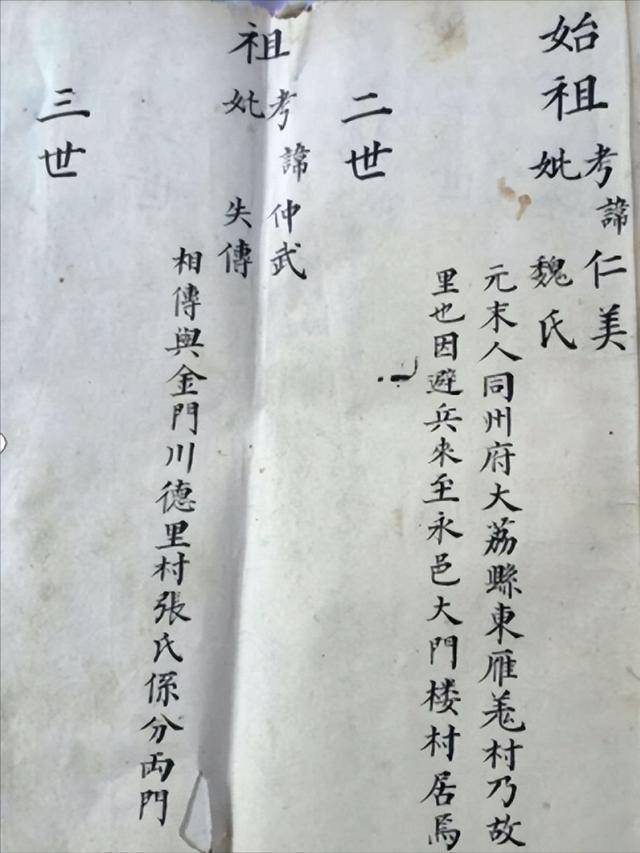 始祖
考諱仁美
妣魏氏
元末人同州府大荔縣東雁羗村乃故
里也因避兵來至永邑大門楼村居焉
二世
祖
考諱仲武
妣失傳
相傳與金門川德里村張氏係分両門
三世